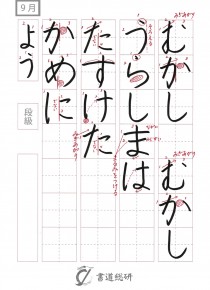 むかし むかし
うらしまは
たすけた
かめに
よう
9月
段級
書道総研